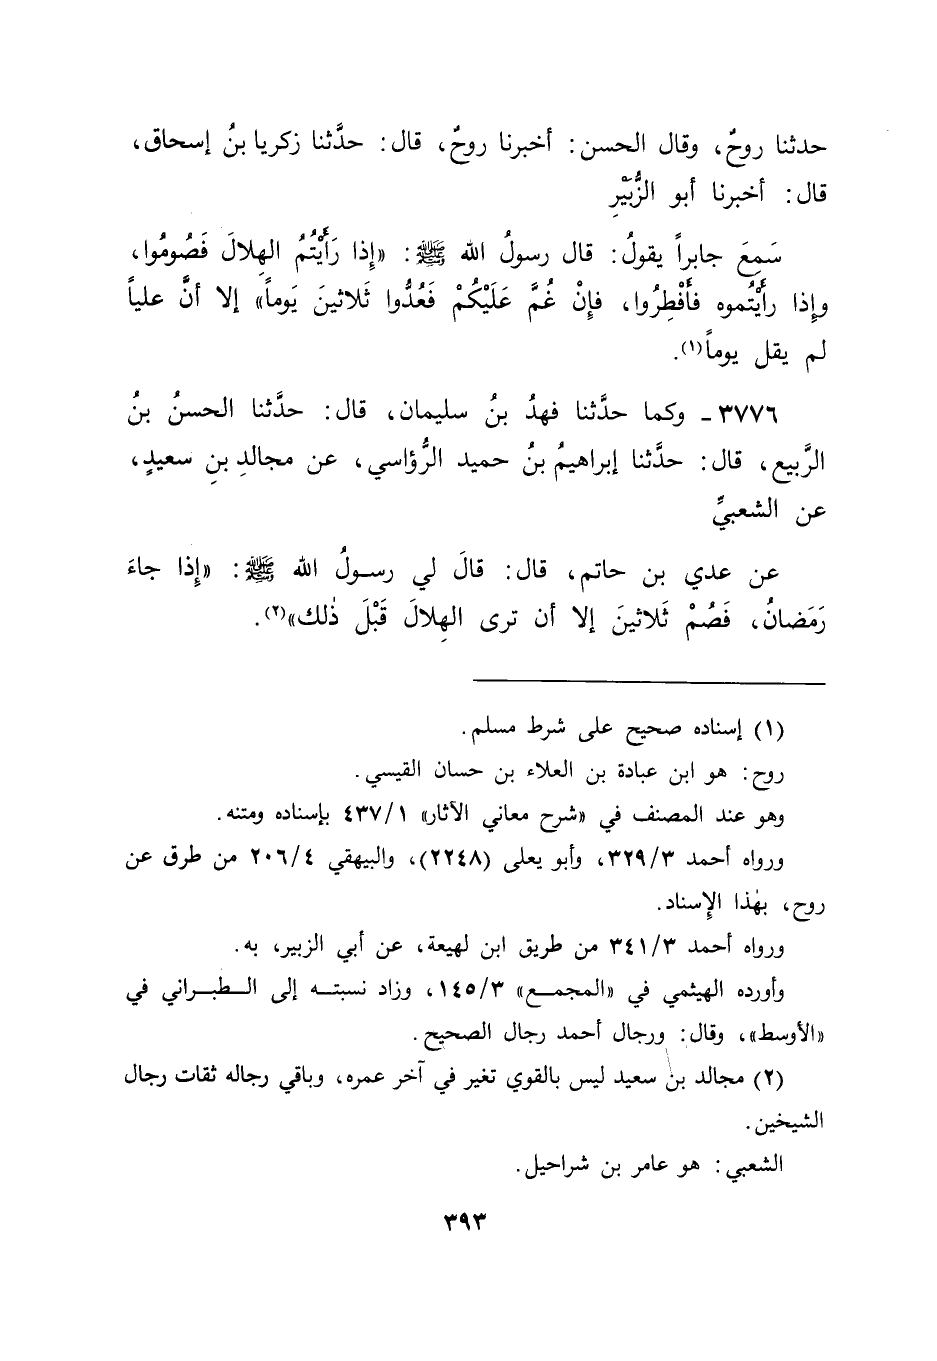 حدثنا روحٌ، وقال الحسن: أخبرنا روحٌ، قال: حدَّثنا زكريا بنُ إسحاق،
قال: أخبرنا أبو الزُّبَيْرِ
سَمِعَ جابراً يقولُ: قال رسولُ الله ﷺ: «إذا رَأَيْتُمُ الهِلالَ فَصُومُوا،
وإذا رأَيْتُموه فأَفْطِرُوا، فإنْ غُمَّ عَلَيْكُمْ فَعُدُّوا ثَلاثينَ يَوماً» إلا أنَّ علياً
لم يقل يوماً(١).
٣٧٧٦ ـ وكما حدَّثنا فهدُ بنُ سليمان، قال: حدَّثنا الحسنُ بنُ
الرَّبيع، قال: حدَّثنا إبراهيمُ بنُ حميد الرُّؤاسي، عن مجالدِ بنِ سعيدٍ،
عن الشعبيِّ
عن عدي بن حاتم، قال: قالَ لي رسولُ الله ﷺ: «إذا جاءَ
رَمَضانُ، فَصُمْ ثَلاثينَ إلا أن ترى الهِلالَ قَبْلَ ذٰلك»(٢).
(١) إسناده صحيح على شرط مسلم.
روح: هو ابن عبادة بن العلاء بن حسان القيسي.
وهو عند المصنف في «شرح معاني الآثار» ٤٣٧/١ بإسناده ومتنه.
ورواه أحمد ٣٢٩/٣، وأبو يعلى (٢٢٤٨)، والبيهقي ٢٠٦/٤ من طرق عن
روح، بهٰذا الإِسناد.
ورواه أحمد ٣٤١/٣ من طريق ابن لهيعة، عن أبي الزبير، به.
وأورده الهيثمي في «المجمع» ١٤٥/٣، وزاد نسبته إلى الطبراني في
«الأوسط»، وقال: ورجال أحمد رجال الصحيح.
(٢) مجالد بن سعيد ليس بالقوي تغير في آخر عمره، وباقي رجاله ثقات رجال
الشيخين.
الشعبي: هو عامر بن شراحيل.
٣٩٣